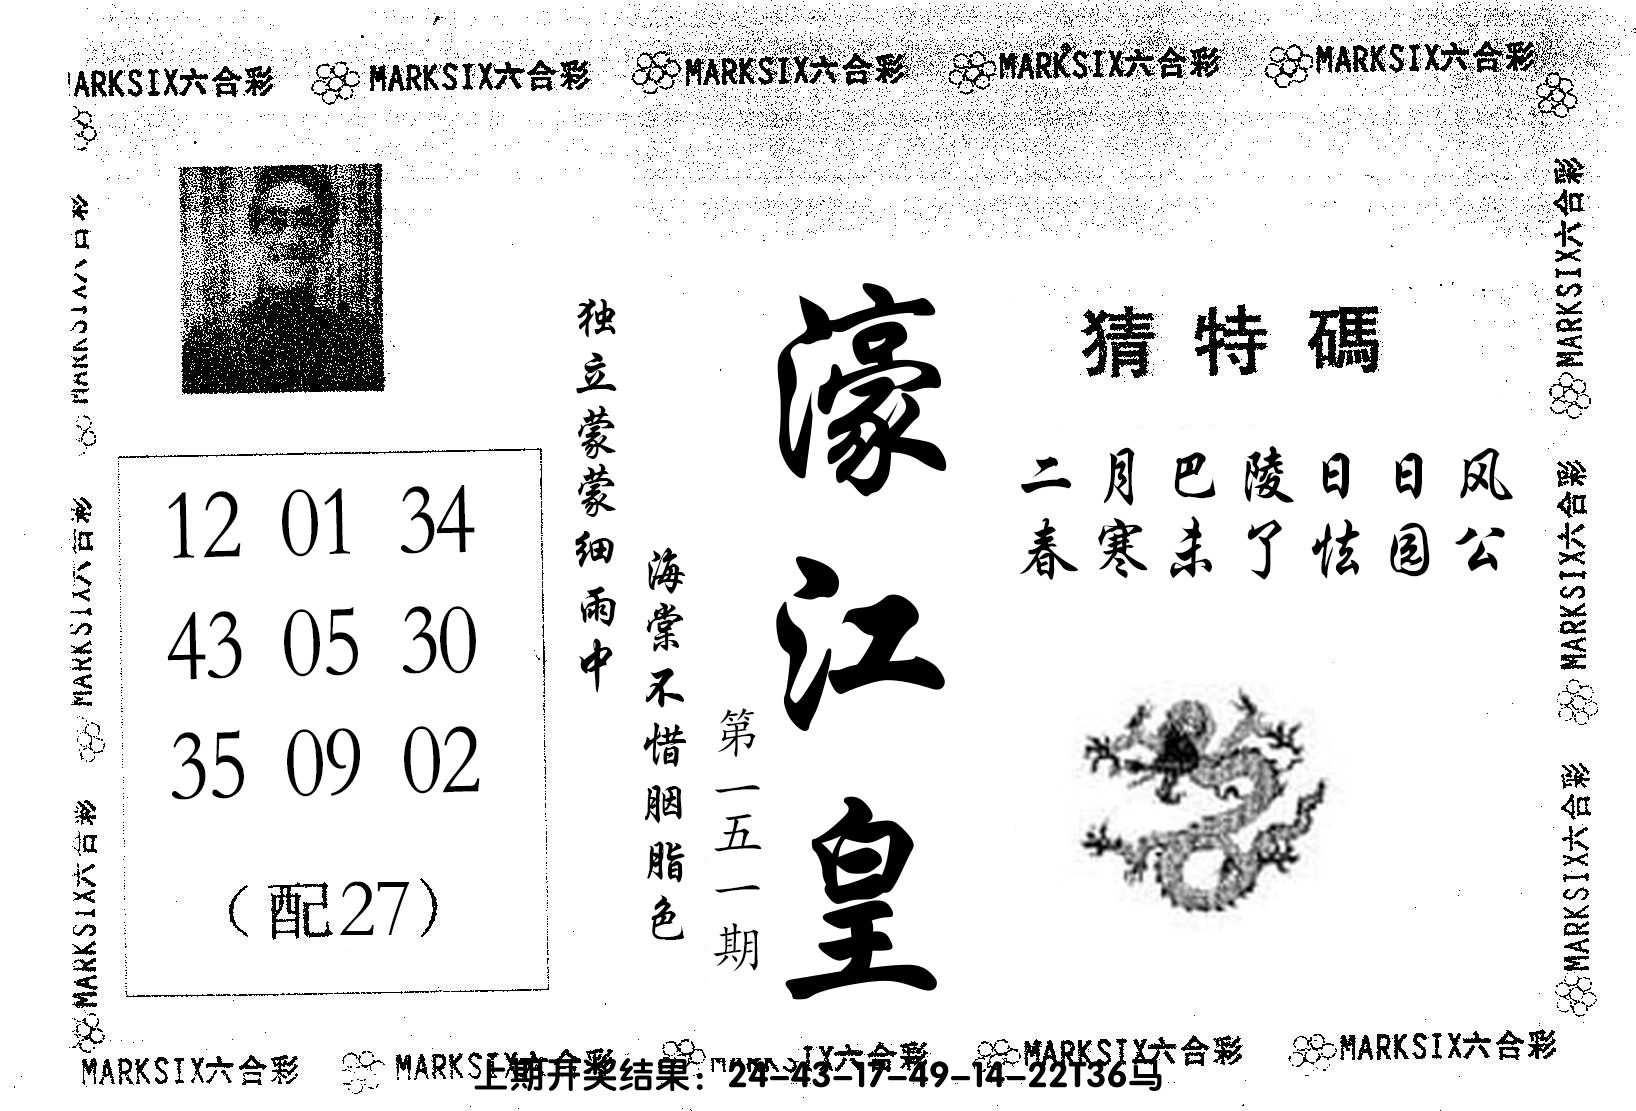 MARKSIX六合彩 MARKSIX六合彩 MARKSIX六合彩 MARKSIX六合彩
猜特碼
二月巴陵日日风
春寒未了怯园公
濠江皇
第一五一期
海棠不惜胭脂色
独立蒙蒙细雨中
12 01 34
43 05 30
35 09 02
（配27）
MARKSIX六合彩
MARKSIX六合彩
MARKSIX六合彩
MARKSIX六合彩
MARKSIX六合彩
MARKSIX六合彩 MARKSIX六合彩 MARKSIX六合彩 MARKSIX六合彩
上期开奖结果：24-43-17-49-14-22T36马